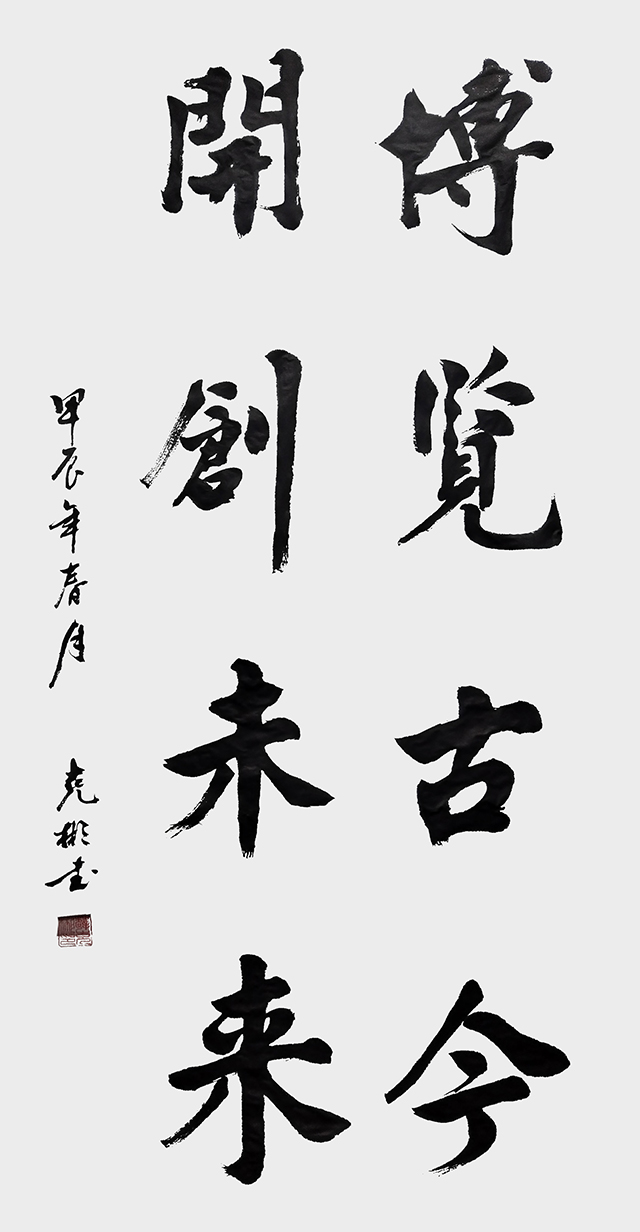 博覽古今
開創未来
甲辰年春月
堯彬书